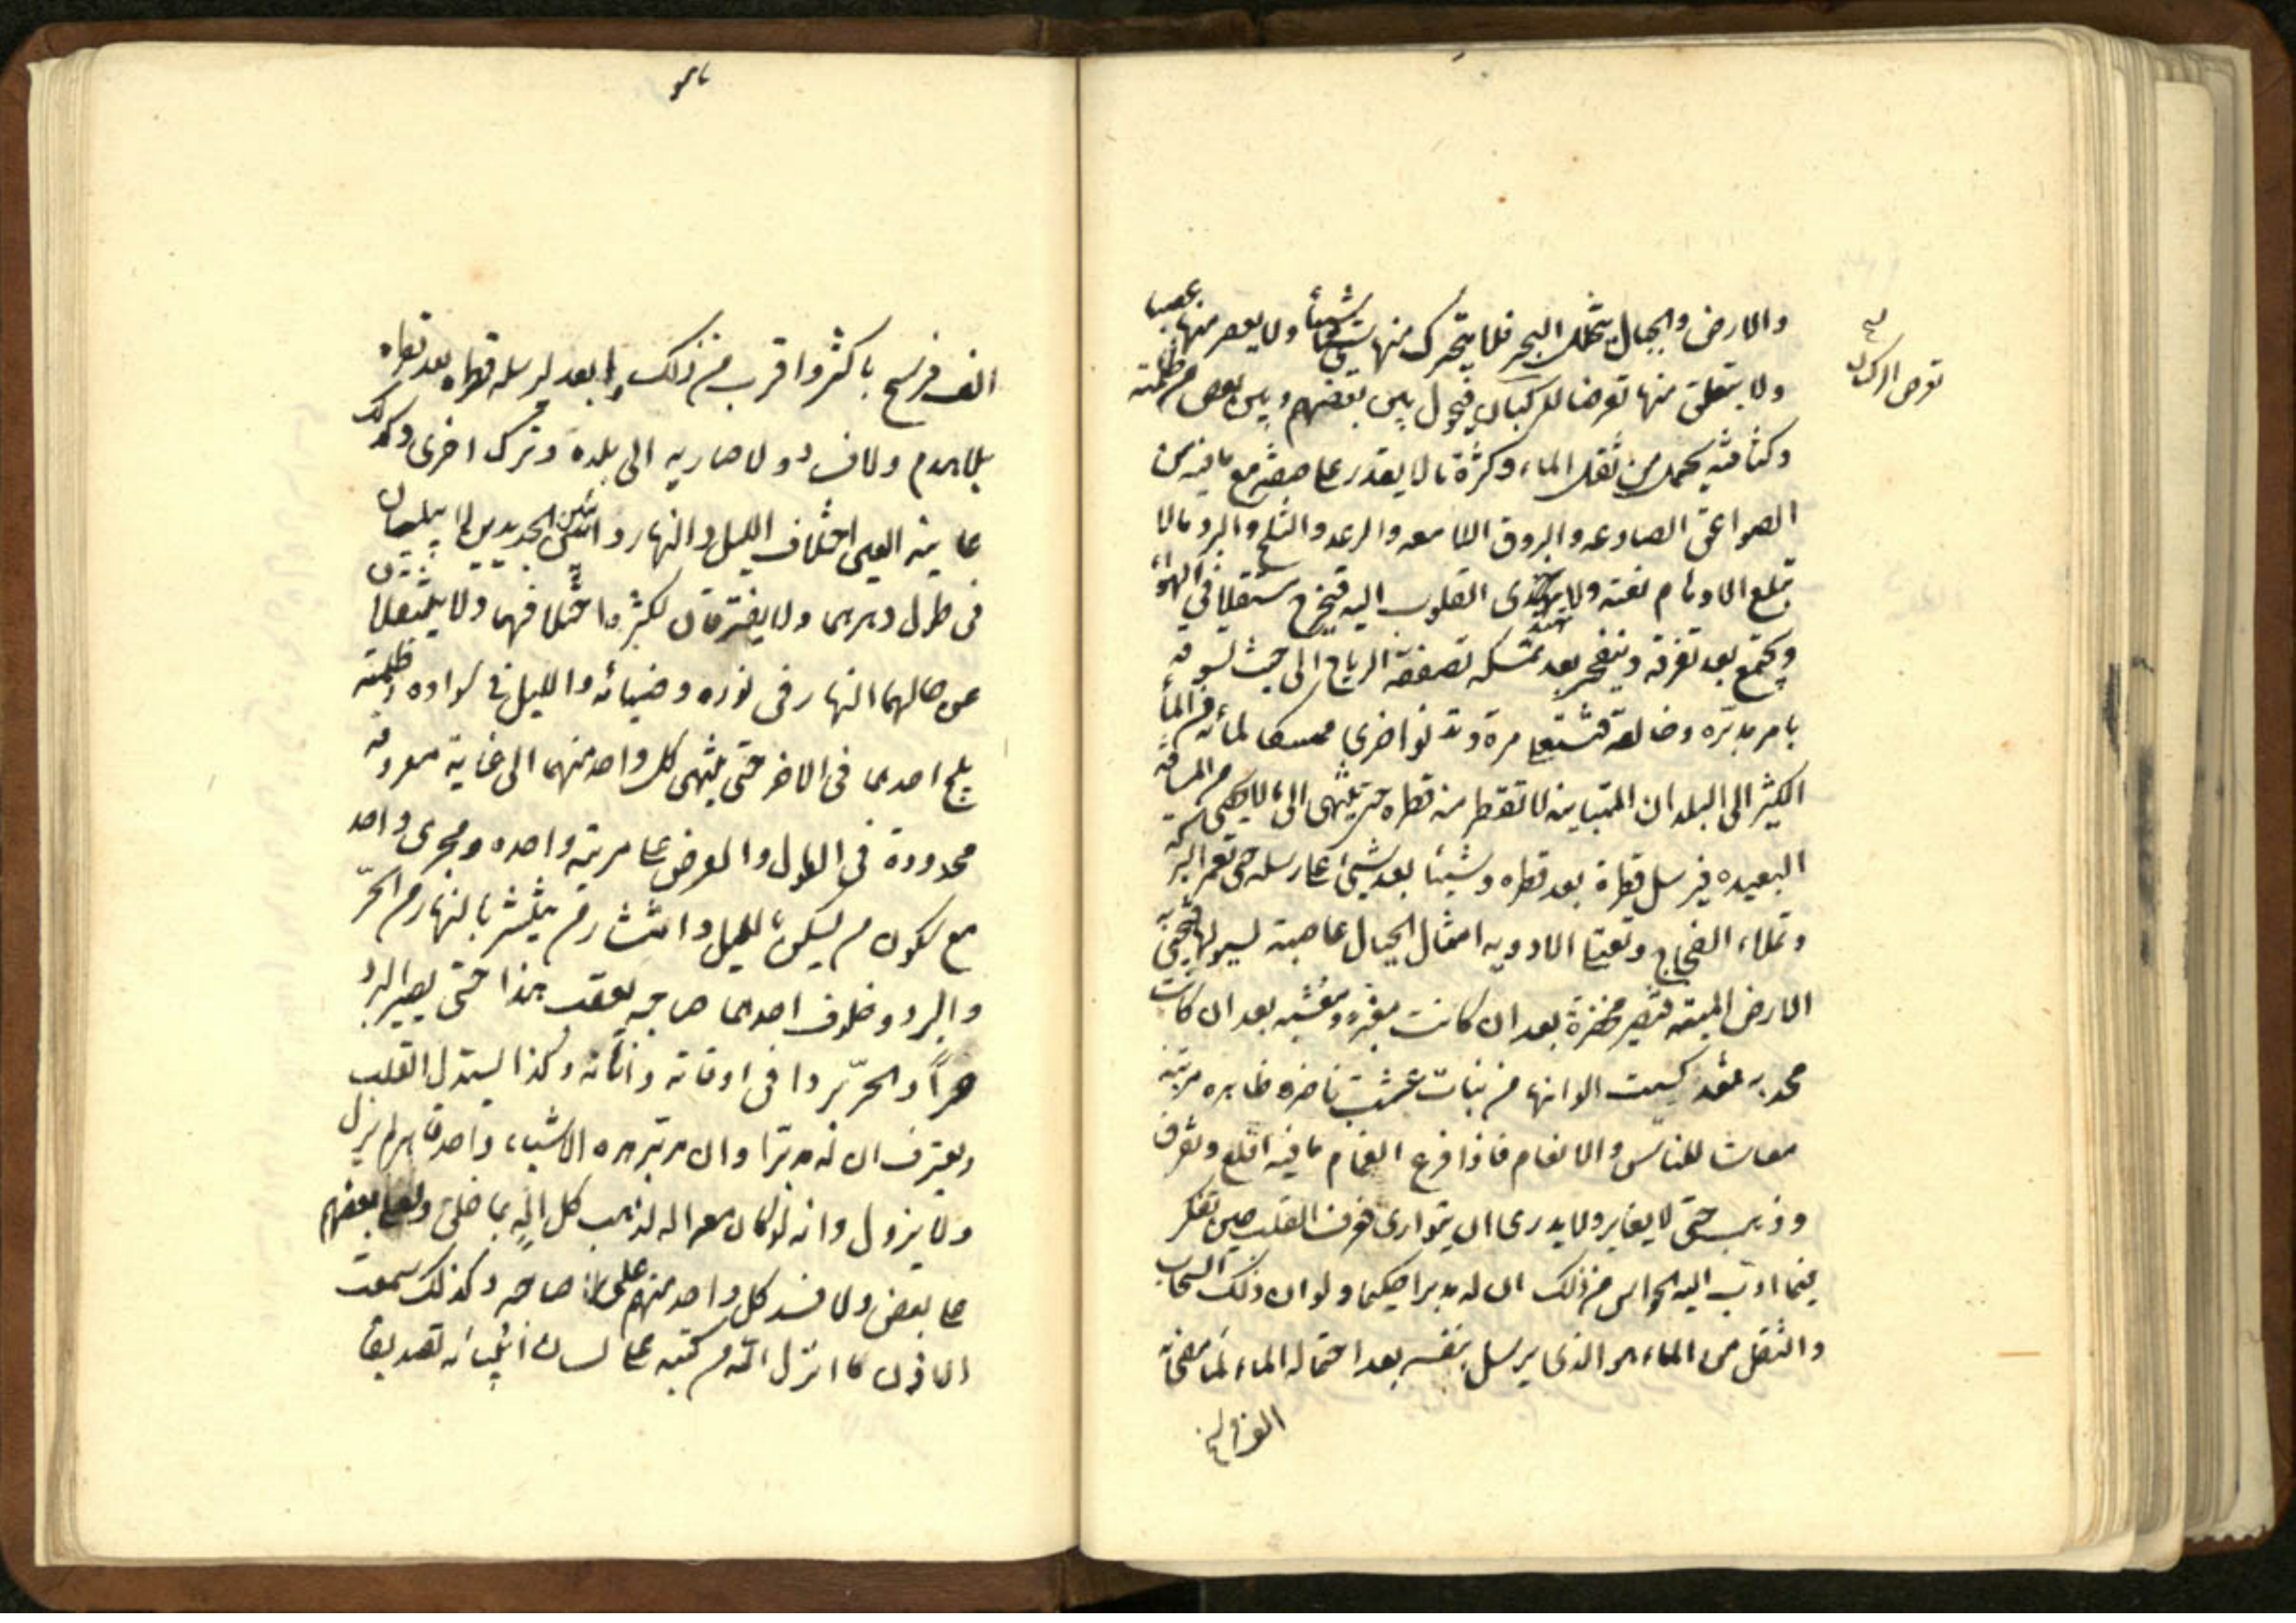 والارض والجبال يتخلل الشجر فلا يتحرك منها شيئا ولا يعصر منها غصنا
تعرض الركبان
ولا يتعلق منها تعرضا للركبان فيحول بين بعضهم وبين بعض من ظلمته
وكثافته يحمل من ثقل الماء وكثرة ما لا يقدر على صفته مع ما فيه من
الصواعق الصادعه والبروق اللامعه والرعد والثلج والبرد مالا
تبلغ الاوهام نعته ولا يهتدى القلوب اليه فيخرج مستقلا فى الهواء
ويجتمع بعد تفرقه وينفجر بعد تمسكه تصفقه الرياح الى حيث تسوقه
بامر مدبّره وخالقه فتسفل مرة وتعلو اخرى ممسك لمائه من الماء
الكثير الى البلدان المتباينه لا تقطر منه قطره حتى ينتهى الى مالا يحصى من المسافه
البعيده فيرسل قطرة بعد قطره وشيئا بعد شئ على رسله حتى تغمر البركة
وتملاء الفجاج وتعتلى الاوديه امثال الجبال غاصة بسيولها فتحيى به
الارض الميته فتصير مخضرة بعد ان كانت مغبره ومعشبه بعد ان كانت
مجدبه فقد كسيت الوانها من نبات عشب ناضره ظاهره مزينه
معاشا للناس والانعام فاذا افرغ الغمام ما فيه اقلع وتفرق
وذهب حتى لا يعاين ولا يدرى اين يتوارى فعرف القلب حين تفكر
فيما ادت اليه الحواس من ذلك ان له مدبرا حكيما ولو ان ذلك السحاب
والثقل من الماء هو الذى يرسل بنفسه بعد احتماله الماء لما مضى به
الف فرسخ
الف فرسخ باكثر واقرب من ذلك وابعد ليرسله قطره بعد قطره
بلا هدم ولا فساد ولا صار به الى بلدة وترك اخرى وكذلك
عاينه العين اختلاف الليل والنهار دائبين جديدين لا يبليان
فى طول دهرهما ولا يفترقان لكثرة اختلافهما ولا ينتقلان
عن حالهما النهار فى نوره وضيائه والليل فى سواده وظلمته
يلج احدهما فى الاخر حتى ينتهى كل واحد منهما الى غاية معروفه
محدودة فى الطول والعرض على مرتبه واحده ومجرى واحد
مع سكون من يسكن الليل وانتشار من ينتشر بالنهار من الحرّ
والبرد وخلوف احدهما صاحبه بعقب هذا حتى يصير البرد
حرّاً والحرّ بردا فى اوقاته وابّانه وكذا يستدل القلب
ويعترف ان له مدبرا وان مدبر هذه الاشياء واحد قاهر لم يزل
ولا يزول وانه لو كان معه اله لذهب كل اله بما خلق ولعلا بعضهم
على بعض ولافسد كل واحد منهم على صاحبه وكذلك سمعت
الاذن ما انزل الله من كتبه على لسان انبيائه تصديقا